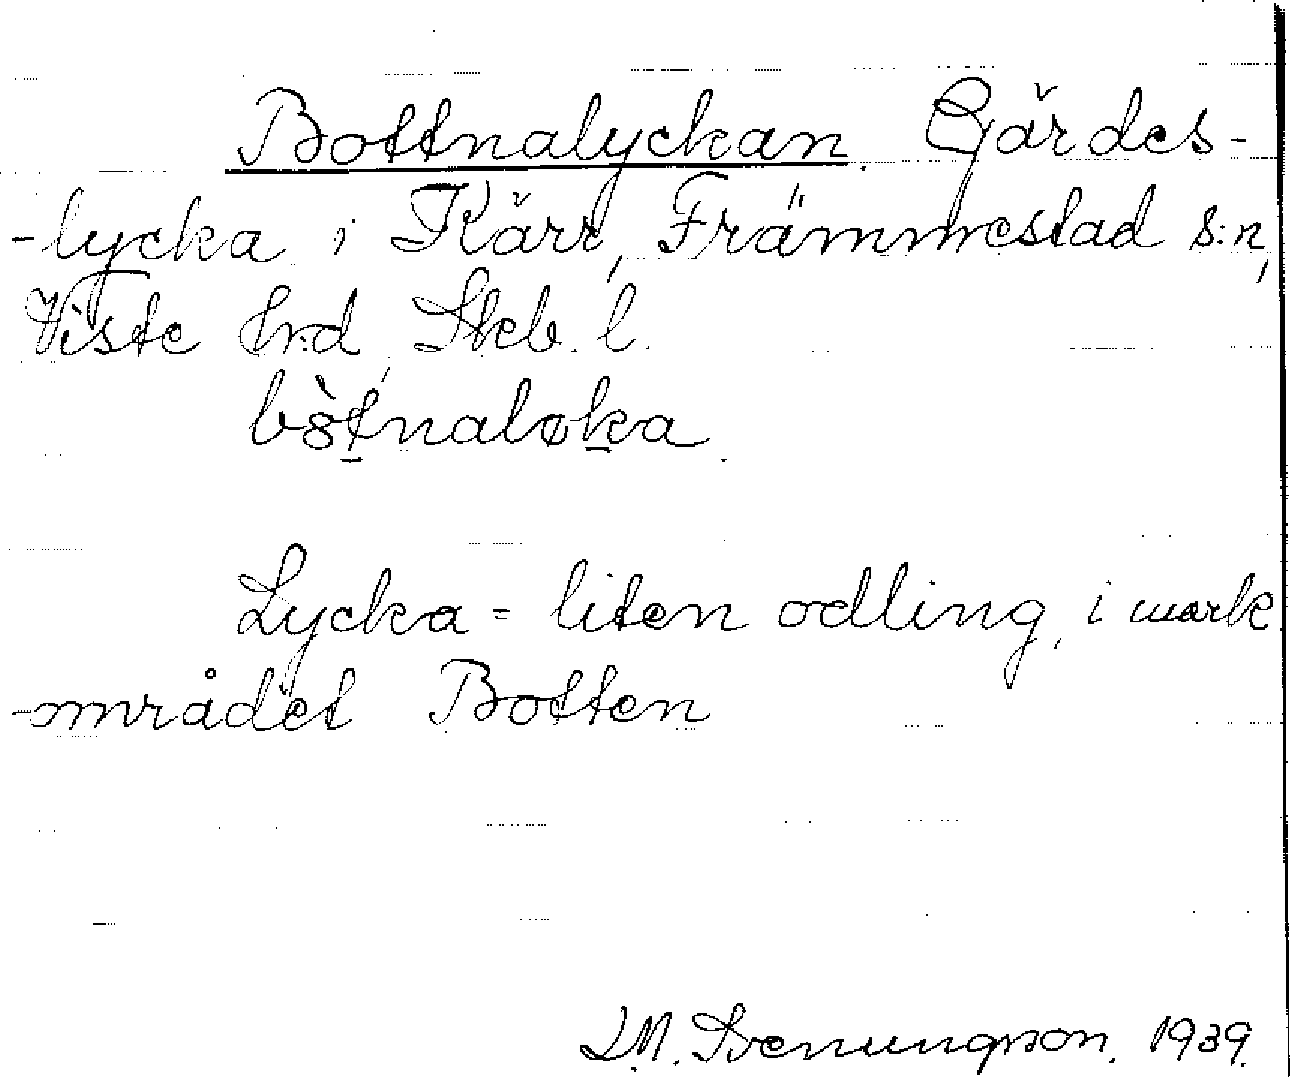 Bottnalyckan. Gärdes-
-lycka i Kärr, Främmestad s:n,
Viste h:d, Skb. l.
bòtnaløka.
Lycka = liten odling, i mark
-området Botten
I.M. Svenungsson. 1939.